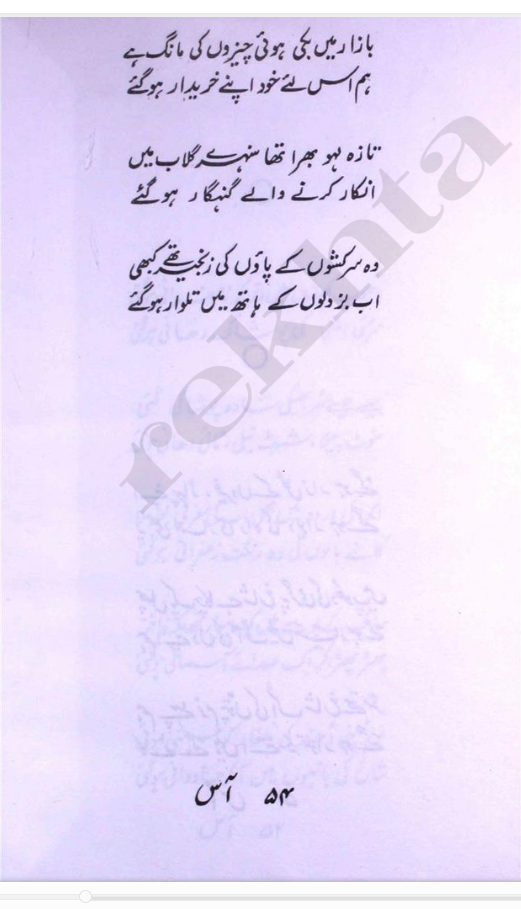 بازار میں بکی ہوئی چیزوں کی مانگ ہے
ہم اس لئے خود اپنے خریدار ہوگئے
تازہ لہو بھرا تھا سنہرے گلاب میں
انکار کرنے والے گنہگار ہوگئے
وہ سرکشوں کے پاؤں کی زنجیر تھے کبھی
اب بزدلوں کے ہاتھ میں تلوار ہوگئے
rekhta
۵۴ آس